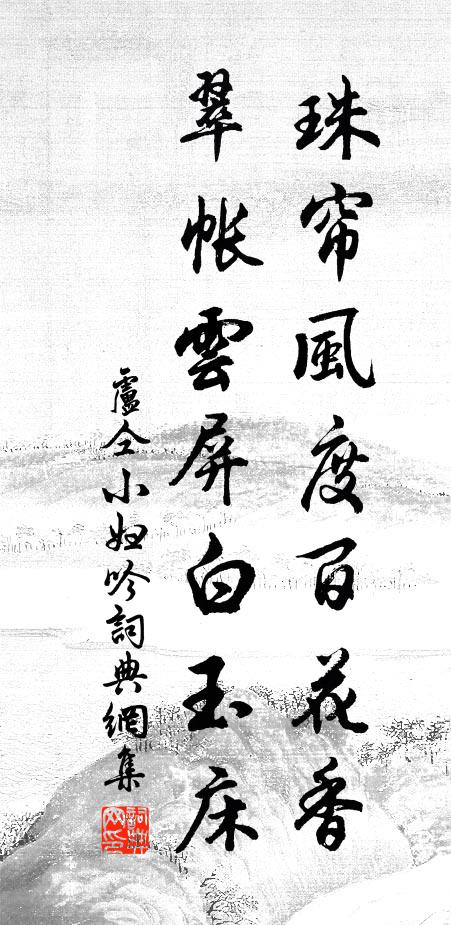 珠帘風度百花香
翠帳雲屏白玉床
盧仝小婦吟詞典網集